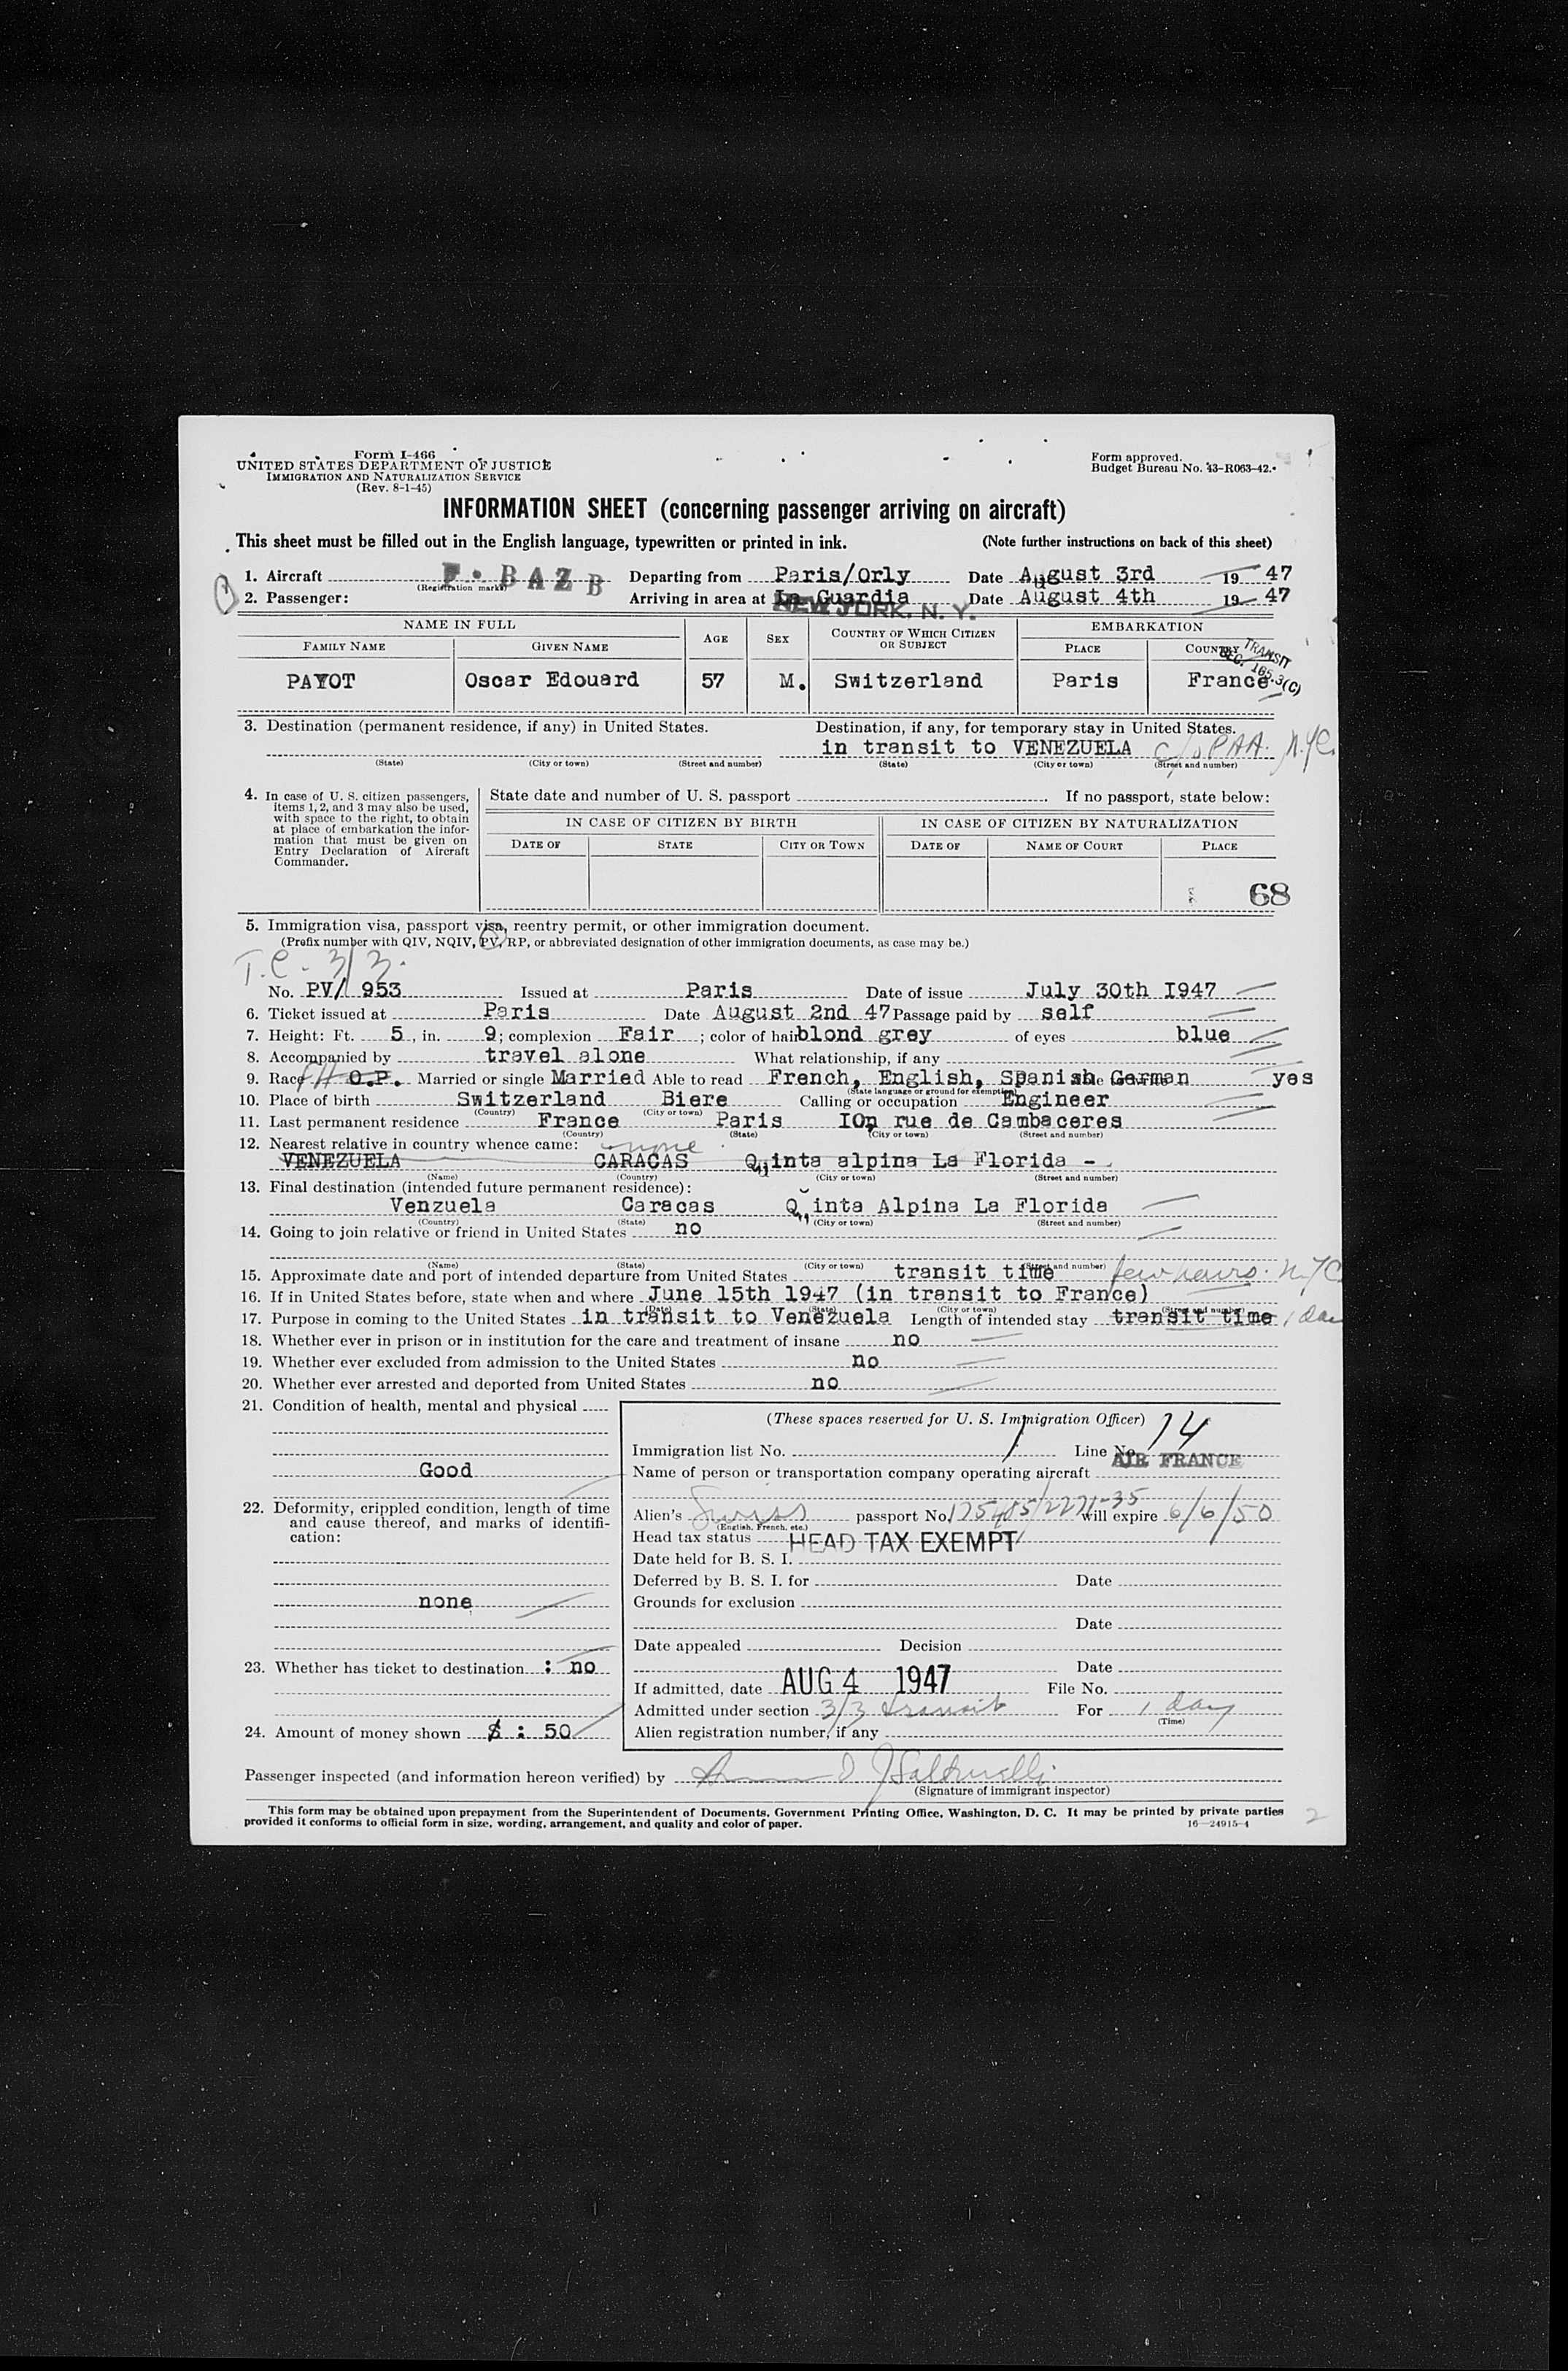 Form I-466
UNITED STATES DEPARTMENT OF JUSTICE
IMMIGRATION AND NATURALIZATION SERVICE
(Rev. 8-1-45)
Form approved.
Budget Bureau No. 43-R063-42.
INFORMATION SHEET (concerning passenger arriving on aircraft)
This sheet must be filled out in the English language, typewritten or printed in ink. (Note further instructions on back of this sheet)
1. Aircraft F. BAZB Departing from Paris/Orly Date August 3rd 19 47
(Registration marks)
2. Passenger: Arriving in area at La Guardia NEW YORK, N. Y. Date August 4th 19 47
NAME IN FULL AGE SEX COUNTRY OF WHICH CITIZEN OR SUBJECT EMBARKATION
FAMILY NAME GIVEN NAME PLACE COUNTRY
TRANSIT
SEC. 165.3(C)
PAYOT Oscar Edouard 57 M. Switzerland Paris France
3. Destination (permanent residence, if any) in United States. Destination, if any, for temporary stay in United States.
in transit to VENEZUELA c/o PAA. N.Y.C.
(State) (City or town) (Street and number) (State) (City or town) (Street and number)
4. In case of U. S. citizen passengers, items 1, 2, and 3 may also be used, with space to the right, to obtain at place of embarkation the information that must be given on Entry Declaration of Aircraft Commander.
State date and number of U. S. passport If no passport, state below:
IN CASE OF CITIZEN BY BIRTH IN CASE OF CITIZEN BY NATURALIZATION
DATE OF STATE CITY OR TOWN DATE OF NAME OF COURT PLACE
68
5. Immigration visa, passport visa, reentry permit, or other immigration document.
(Prefix number with QIV, NQIV, PV, RP, or abbreviated designation of other immigration documents, as case may be.)
T.C. 3/3.
No. PV/ 953 Issued at Paris Date of issue July 30th I947
6. Ticket issued at Paris Date August 2nd 47 Passage paid by self
7. Height: Ft. 5, in. 9; complexion Fair; color of hair blond grey of eyes blue
8. Accompanied by travel alone What relationship, if any
9. Race O.P. Married or single Married Able to read French, English, Spanish German yes
(State language or ground for exemption)
10. Place of birth Switzerland Biere Calling or occupation Engineer
(Country) (City or town)
11. Last permanent residence France Paris IOn rue de Cambaceres
(Country) (State) (City or town) (Street and number)
12. Nearest relative in country whence came: none
VENEZUELA CARACAS Quinta alpina La Florida -
(Name) (Country) (City or town) (Street and number)
13. Final destination (intended future permanent residence):
Venzuela Caracas Quinta Alpina La Florida
(Country) (State) (City or town) (Street and number)
14. Going to join relative or friend in United States no
(Name) (State) (City or town) (Street and number)
15. Approximate date and port of intended departure from United States transit time few hours. N.Y.C.
16. If in United States before, state when and where June 15th 1947 (in transit to France)
(Date) (State) (City or town) (Street and number)
17. Purpose in coming to the United States in transit to Venezuela Length of intended stay transit time 1 day
18. Whether ever in prison or in institution for the care and treatment of insane no
19. Whether ever excluded from admission to the United States no
20. Whether ever arrested and deported from United States no
21. Condition of health, mental and physical
Good
22. Deformity, crippled condition, length of time and cause thereof, and marks of identification:
none
23. Whether has ticket to destination : no
24. Amount of money shown $ : 50
(These spaces reserved for U. S. Immigration Officer)
Immigration list No. 1 Line No. 14
Name of person or transportation company operating aircraft AIR FRANCE
Alien's Swiss passport No. will expire 6/6/50
(English, French, etc.)
Head tax status HEAD TAX EXEMPT
Date held for B. S. I.
Deferred by B. S. I. for Date
Grounds for exclusion
Date
Date appealed Decision
Date
If admitted, date AUG 4 1947 File No.
Admitted under section 3/3 transit For 1 day
(Time)
Alien registration number, if any
Passenger inspected (and information hereon verified) by
(Signature of immigrant inspector)
This form may be obtained upon prepayment from the Superintendent of Documents, Government Printing Office, Washington, D. C. It may be printed by private parties
provided it conforms to official form in size, wording, arrangement, and quality and color of paper. 16—24915-4
2